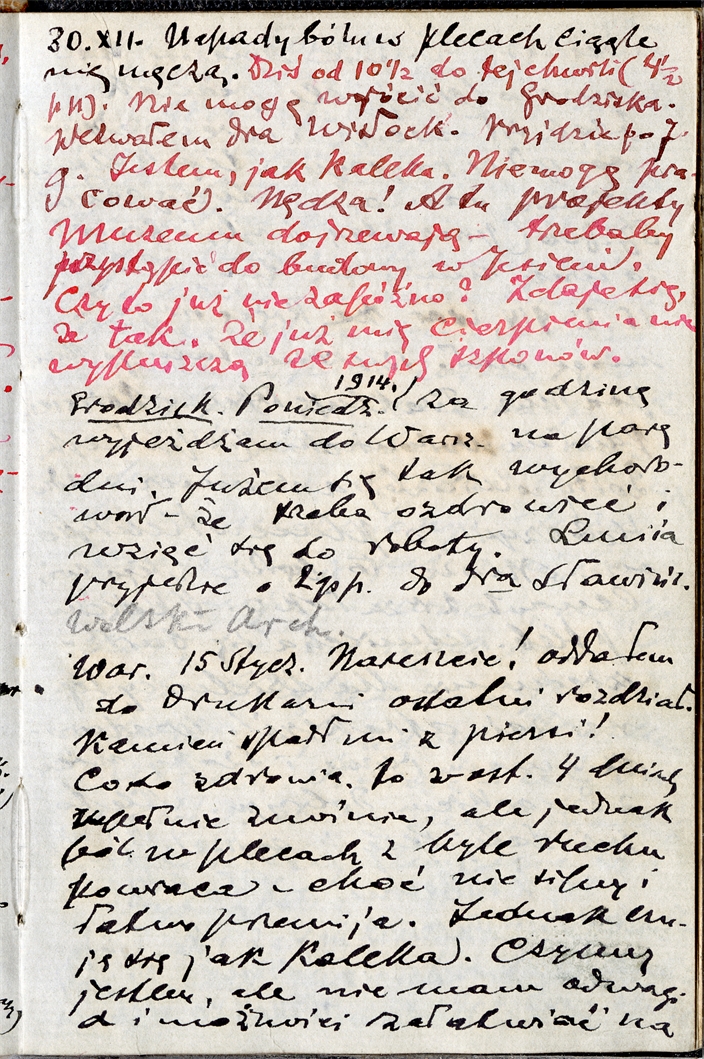 30.XII. Napady bólu w plecach ciągle
mię męczą. Dziś od 10 1/2 do tej chwili (4 1/2
pp). Nie mogę wrócić do Grodziska.
Wezwałem dra Wisłock. Przyjdzie p. 7
g. Jestem, jak kaleka. Nie mogę pra-
cować. Nędza! A tu projekty
Muzeum dojrzewają – trzebaby
przystąpić do budowy w jesieni.
Czy to już nie zapóźno? Zdaje się,
że tak. Że już mię cierpienia nie
wypuszczą ze swych szponów.
1914.
Grodzisk. Poniedz. Za godzinę
wyjeżdżam do Warsz. na parę
dni. Jużem się tak wychoro-
wał – że trzeba ozdrowieć i
wziąć się do roboty.
przyjedzie o 2 pp. do dra
Arch.
War. 15 Stycz. Nareszcie! oddałem
do drukarni ostatni rozdział.
Kamień spadł mi z piersi!
Co do zdrowia, to w ost. 4 dniach
zupełnie zmiana, ale jednak
ból w plecach z byle ruchu
powraca – choć nie silny i
łatwo przemija. Jednak czu-
ję się jak kaleka. Czynny
jestem, ale nie mam odwagi
a i możności załatwiać na